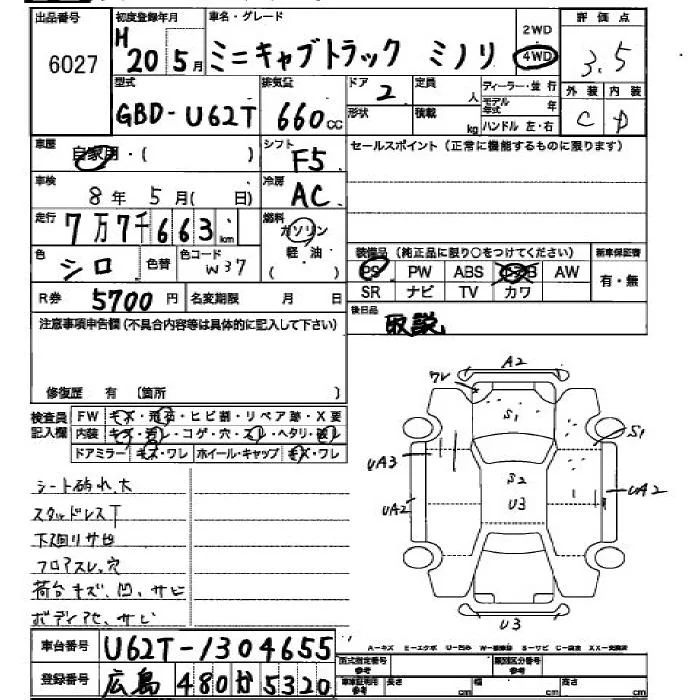 出品番号 初度登録年月 車名・グレード 2WD 評価点
6027 H20年5月 ミニキャブトラック ミノリ 4WD 3.5
型式 排気量 ドア 定員 ディーラー・並行 外装 内装
GBD-U62T 660cc 2 人 モデル年式 年 C D
形状 積載 kg ハンドル 左・右
車歴 自家用・( ) シフト F5 セールスポイント(正常に機能するものに限ります)
車検 8年5月( 日) 冷房 AC
走行 7万7千663km 燃料 ガソリン
軽・油
( )
色 シロ 色替 色コード W37
装備品 (純正品に限り○をつけてください) 新車保証書
PS PW ABS AW 有・無
SR ナビ TV カワ
R券 5700円 名変期限 月 日
後日品 取説
注意事項申告欄(不具合内容等は具体的に記入して下さい)
修復歴 有 〔箇所 〕
検査員記入欄 FW キズ・飛石・ヒビ割・リペア跡・X要
内装 キズ・汚レ・コゲ・穴・スレ・ヘタリ・破レ
ドアミラー キズ・ワレ ホイール・キャップ キズ・ワレ
シート破れ大
スタッドレスT
下廻りサビ
フロアスレ、穴
荷台キズ、凹、サビ
ボディアセ、サビ
A2
ワレ
S1
S1
UA3
S2
UA2
U3
UA2
U3
A-キズ E-エクボ U-凹み W-補修跡 S-サビ C-腐食 XX-交換済
車台番号 U62T-1304655
登録番号 広島 480か5320
型式指定番号 参考 類別区分番号 参考
車庫証明用 参考 長さ cm 幅 cm 高さ cm